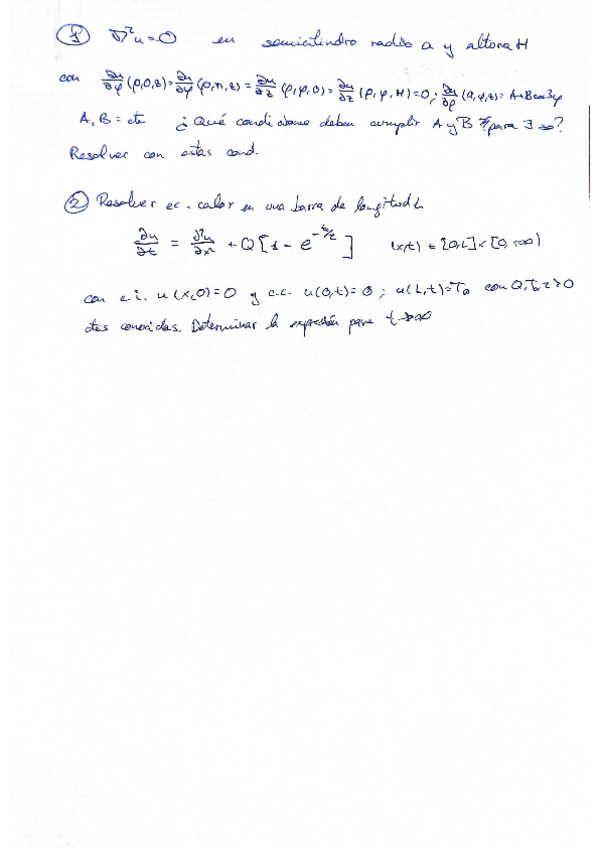 ① ∇²u=0 en semicilindro radio a y altura H
con ∂u/∂φ(ρ,0,z)=∂u/∂φ(ρ,π,z)=∂u/∂z(ρ,φ,0)=∂u/∂z(ρ,φ,H)=0; ∂u/∂ρ(a,φ,z)=A+Bcos3φ
A,B=cte ¿Qué condiciones deben cumplir A y B para ∃ so?
Resolver con estas cond.
② Resolver ec. calor en una barra de longitud L
∂u/∂t = ∂²u/∂x² + Q[1-e^(-t/τ)] (x,t) ∈ [0,L]×[0,+∞)
con c.i. u(x,0)=0 y c.c. u(0,t)=0; u(L,t)=T₀ con Q,T₀,τ>0
ctes conocidas. Determinar la expresión para t→∞